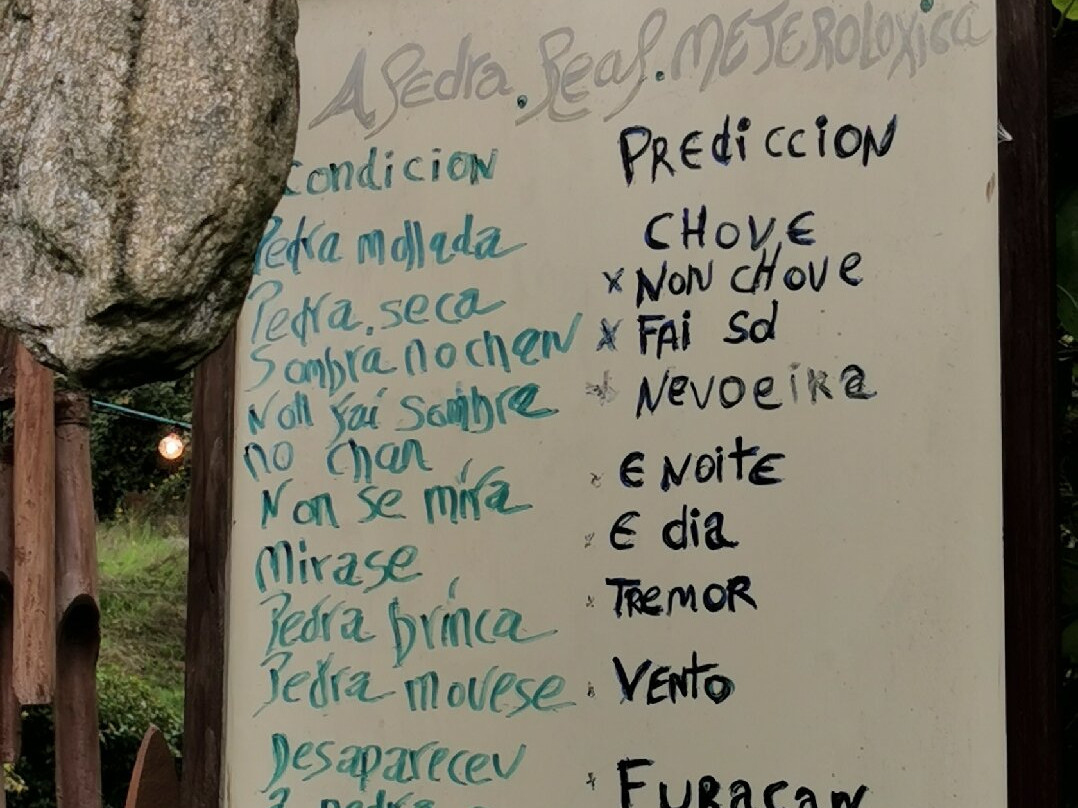 A Pedra. Real. METEROLOXiCa
Condicion PREdiccION
Pedra mollada CHOVE
Pedra. seca x NON CHOVE
Sombra no chan x FAi Sol
Non fai sombra x NevoeiRa
no chan
Non se mira x E NOitE
Mirase x E dia
Pedra brinca x TREMOR
Pedra movese VENTO
Desapareceu x FURACAN
a pedra